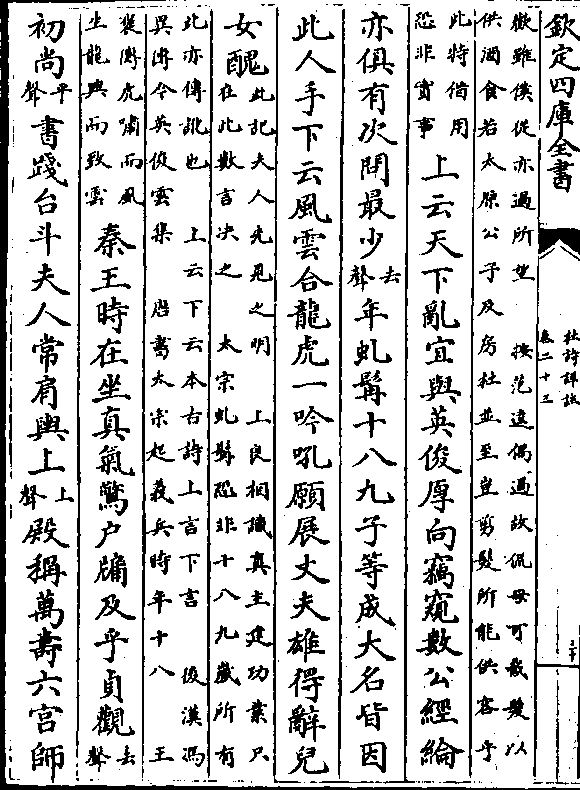 欽定四庫全書
杜詩詳註
卷二十三
歡雖僕從亦過所望 按范逵偶過故侃母可截髮以
供酒食若太原公子及房杜並至豈剪髮所能供客乎
此特借用
恐非實事
上云天下亂宜與英俊厚向竊窺數公經綸
亦俱有次問最少去聲年虬髯十八九子等成大名皆因
此人手下云風雲合龍虎一吟吼願展丈夫雄得辭兒
女醜
此記夫人先見之明 上良相識真主建功業只
在此數言决之 太宗虬髯恐非十八九歲所有
此亦傳訛也 上云下云本古詩上言下言 後漢馮
異傳今英俊雲集 唐書太宗起義兵時年十八 王
褒傳虎嘯而風
坐龍興而致雲
秦王時在坐真氣驚户牖及乎貞觀去聲
初尚平聲書踐台斗夫人常肩輿上上聲殿稱萬壽六宮師